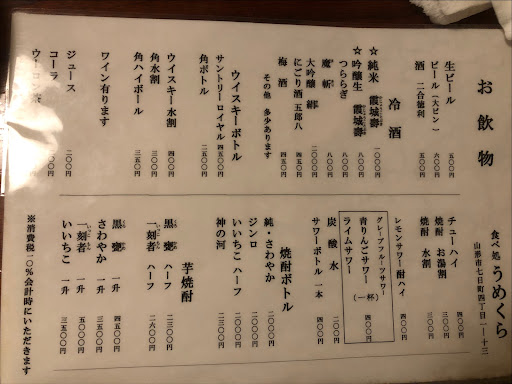 お飲物
生ビール 五〇〇円
ビール(大ビン) 六〇〇円
酒 二合徳利 八〇〇円
冷酒
☆純米 霞城壽 一〇〇〇円
☆吟醸生 霞城壽 八〇〇円
つららぎ 八〇〇円
魔斬
大吟醸 絹
にごり酒 五郎八 四五〇円
梅酒 四五〇円
その他 多少あります
ウイスキーボトル
サントリーローヤル 四五〇〇円
角ボトル 二五〇〇円
ウイスキー水割 四〇〇円
角水割 三五〇円
角ハイボール 三五〇円
ワイン有ります
ジュース 二〇〇円
コーラ 二〇〇円
ウーロン茶 二〇〇円
食べ処 うめくら
山形市七日町四丁目一ー十三
チューハイ 三〇〇円
焼酎 お湯割 三〇〇円
焼酎 水割 三〇〇円
レモンサワー酎ハイ 四〇〇円
グレープフルーツサワー
青りんごサワー (一杯) 四〇〇円
ライムサワー
炭酸水 二〇〇円
サワーボトル 一本 四〇〇円
焼酎ボトル
純・さわやか 二〇〇〇円
ジンロ 二〇〇〇円
いいちこ ハーフ 二〇〇〇円
神の河 二〇〇〇円
芋焼酎
黒甕 ハーフ 二三〇〇円
一刻者 ハーフ 二六〇〇円
黒甕 一升 四五〇〇円
さわやか 一升 三五〇〇円
一刻者 一升 五〇〇〇円
いいちこ 一升 三五〇〇円
※消費税10%会計時にいただきます